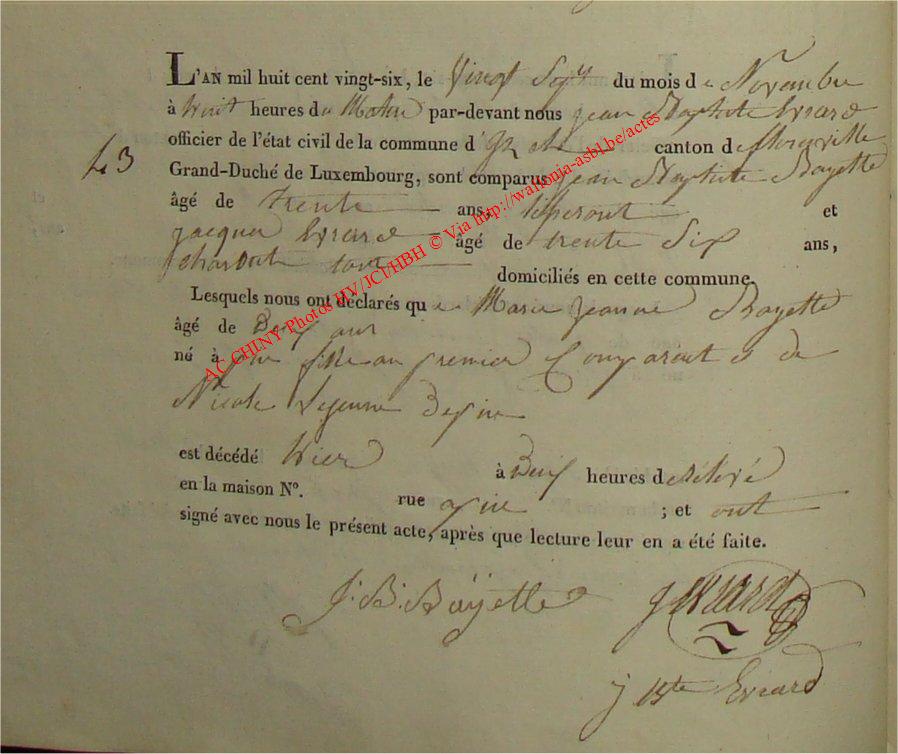 L'AN mil huit cent vingt-six, le Vingt Sept du mois de Novembre
à huit heures du Matin par-devant nous jean Baptiste Evrard
officier de l'état civil de la commune d' canton de florenville
43
Grand-Duché de Luxembourg, sont comparus jean Baptiste Bayette
âgé de trente ans, et
jacques Evrard âgé de trente Six ans,
domiciliés en cette commune.
Lesquels nous ont déclarés que Marie jeanne Bayette
âgé de Deux ans
né à fille au premier Comparant et de
Nicole Lejeune
est décédé hier à heures de
en la maison N°. rue ; et ont
signé avec nous le présent acte, après que lecture leur en a été faite.
J: B: Bayette
j Evrard
j Bte Evrard
AC CHINY-Photos HV/JCl/HBH © Via http://wallonia-asbl.be/actes